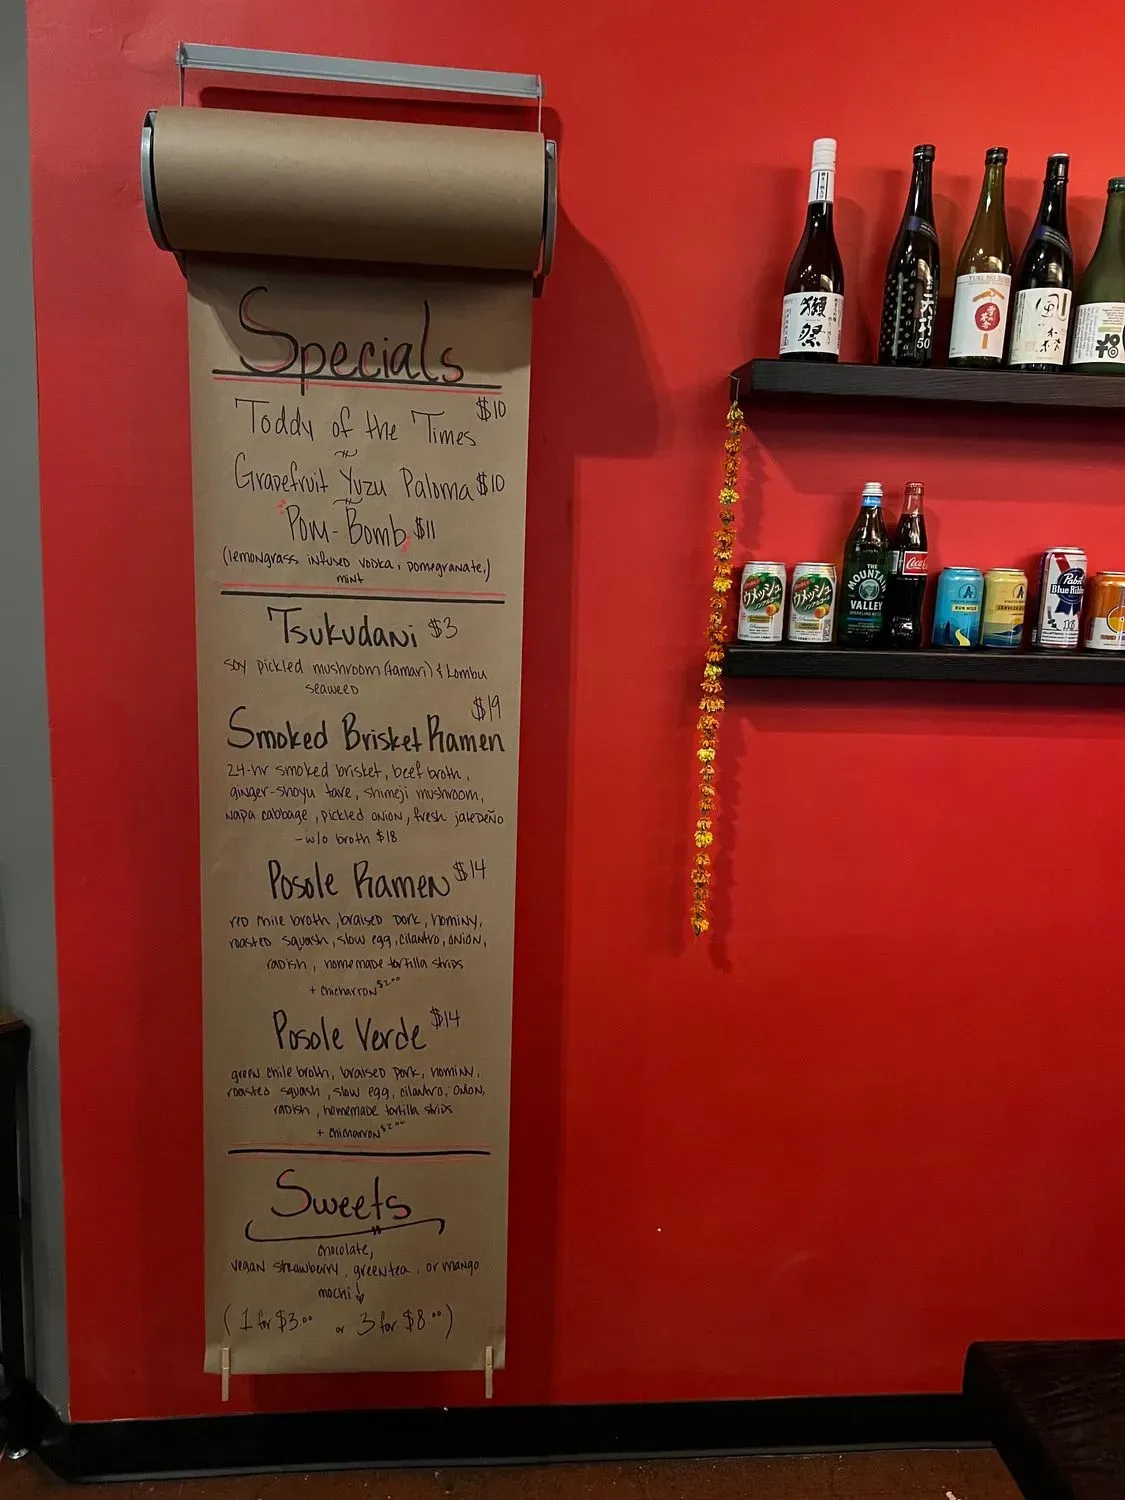 Specials
Toddy of the Times $10
Grapefruit Yuzu Paloma $10
Pom-Bomb $11
(lemongrass infused vodka, pomegranate,)
mint
Tsukudani $3
soy pickled mushroom (tamari) & kombu
seaweed
$19
Smoked Brisket Ramen
24-hr smoked brisket, beef broth,
ginger-shoyu tare, shimeji mushroom,
napa cabbage, pickled onion, fresh jalepeño
- w/o broth $18
Posole Ramen $14
red chile broth, braised pork, hominy,
roasted squash, slow egg, cilantro, onion,
radish, homemade tortilla strips
+ chicharron $2.00
Posole Verde $14
green chile broth, braised pork, hominy,
roasted squash, slow egg, cilantro, onion,
radish, homemade tortilla strips
+ chicharron $2.00
Sweets
chocolate,
vegan strawberry, green tea, or mango
mochi!
(1 for $3.00 or 3 for $8.00)
獺祭
50
YUKI NO BOSHA
ウメッシュ
ウメッシュ
THE
MOUNTAIN
VALLEY
SPARKLING WATER
Coca-Cola
RUN WILD
CERVEZA
Pabst
Blue Ribbon